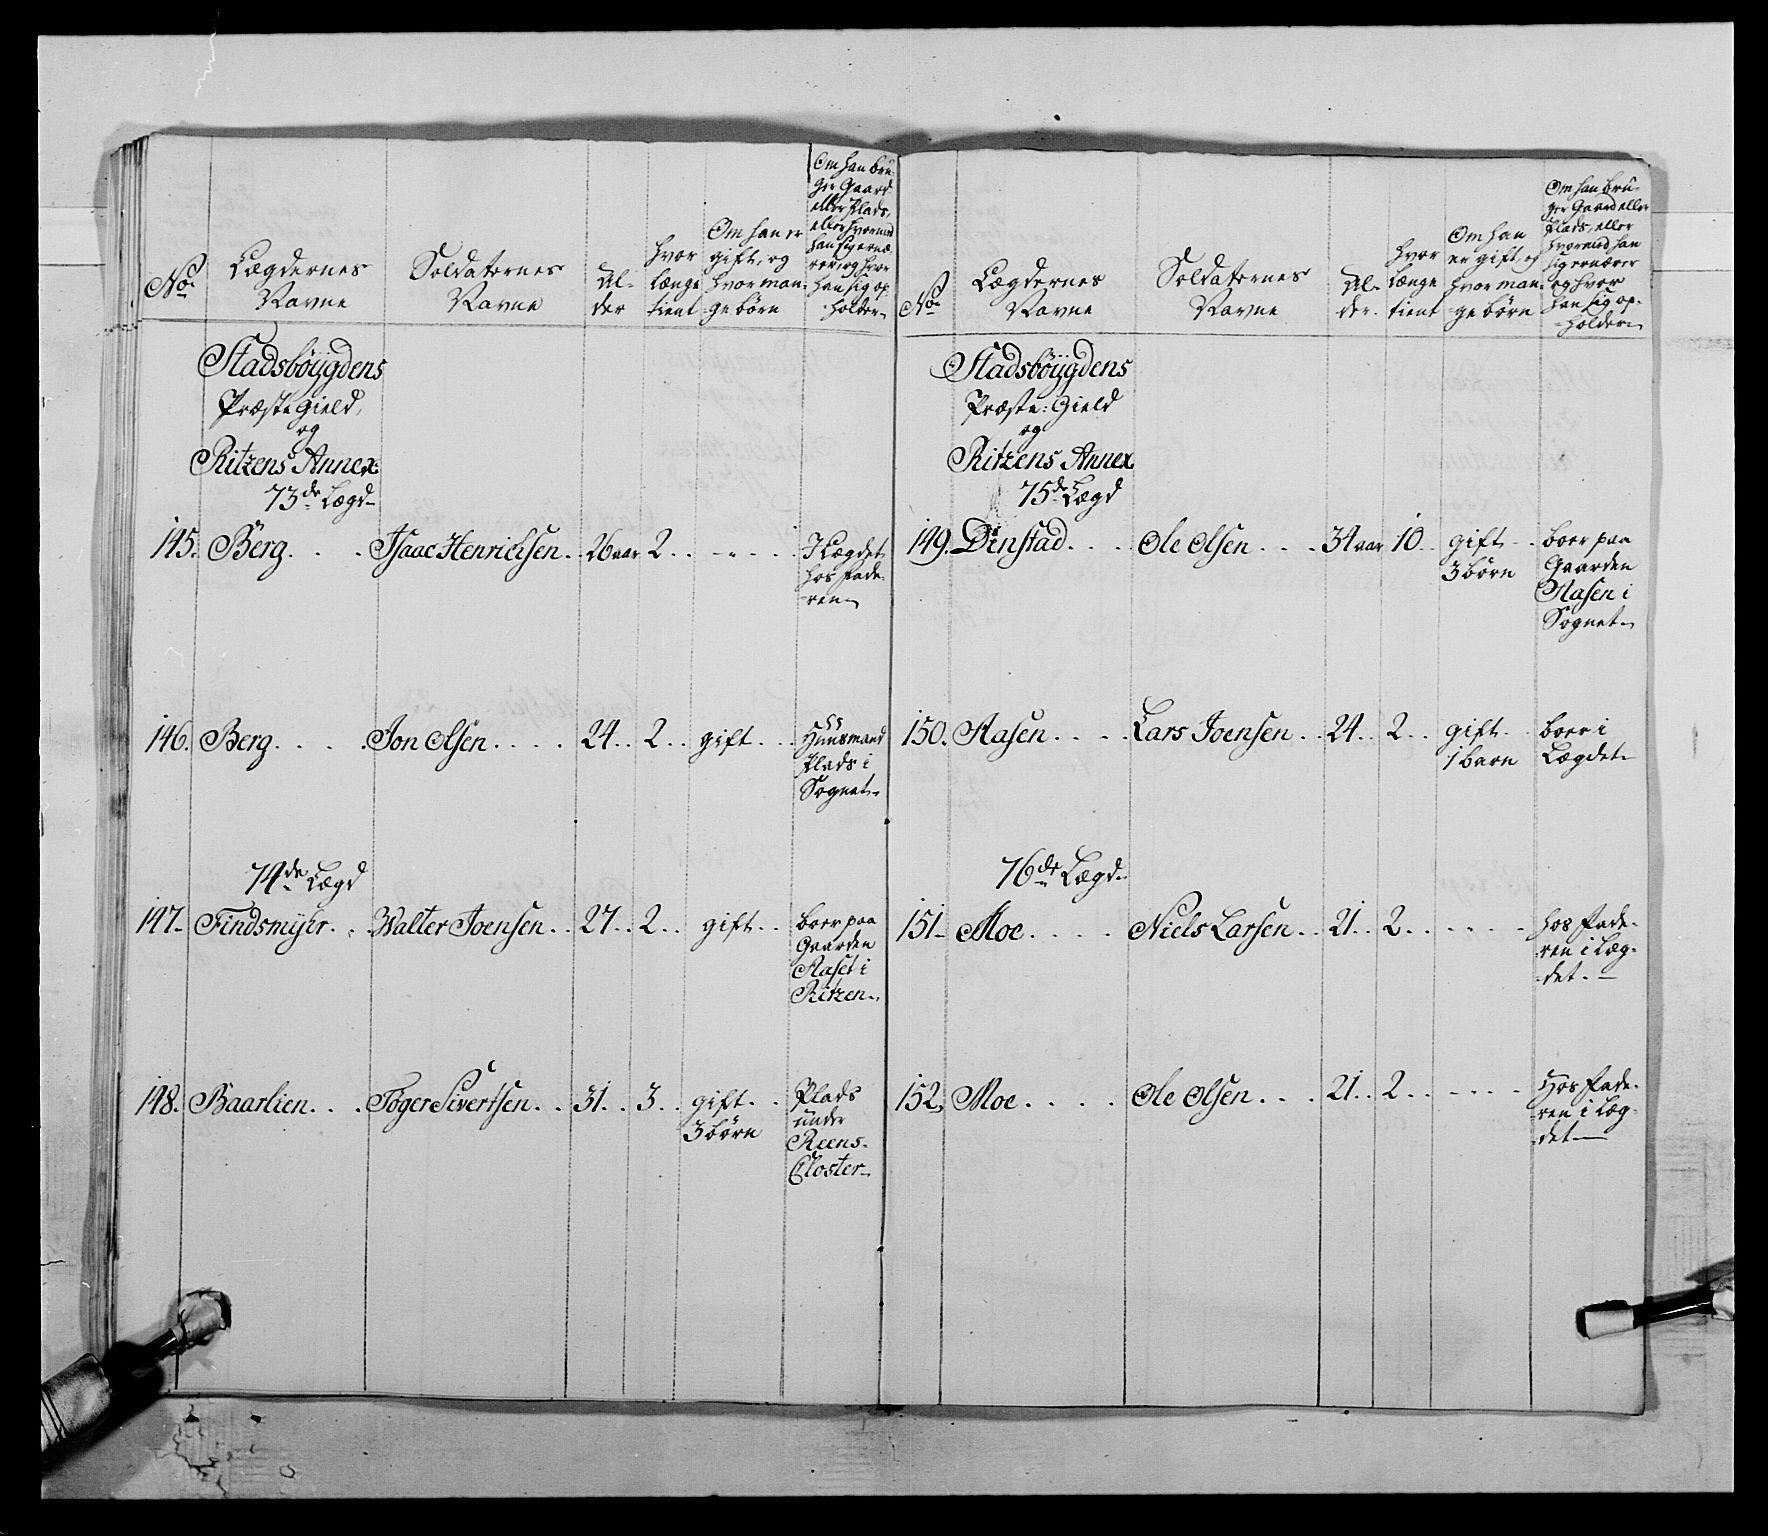 No.
Lægdernes
Navne
Soldaternes
Navne
Al-
der
hvor
længe
tient
Om han er
gift, og
hvor man-
ge börn
Om han bru-
ger Gaard
eller Plads,
eller hvormed
han sig ernæ-
rer, og hvor
han sig op-
holder
Stadsböÿgdens
Præste Gield,
og
Ritzens Annex
73de Lægd
145. Berg. . . . Isaac Henrichsen. . 26 aar 2. . - . - . . I Lægdet
hos Fade-
ren
146. Berg. . . . . Jon Olsen. . . . 24. . 2. . gift. . . Huusmand
Plads i
Sognet
74de Lægd
147. Findsmÿhr. . . Walter Joensen. . 27. . 2. . gift. . boer paa
Gaarden
Aaset i
Ritzen
148. Baarlien. . . Toger Sivertsen. . 31. . 3. . gift. . Plads
3 börn under
Reens-
Closter
No.
Lægdernes
Navne
Soldaternes
Navne
Al-
der.
hvor
længe
tient
Om han
er gift, og
hvor man-
ge börn
Om han bru-
ger Gaard eller
Plads, eller
hvormed han
sig ernærer
og hvor
han sig op-
holder
Stadsböÿgdens
Præste: Gield
og
Ritzens Annex
75de Lægd
149. Dinstad. . . . Ole Olsen. . . . 34 aar 10. . gift. . boer paa
3 börn Gaarden
Aasen i
Sognet
150. Aasen. . . . Lars Joensen. . 24. . 2. . gift. . boer i
1 barn Lægdet
76de Lægd
151. Moe. . . . Niels Larsen. . 21. . 2. . - - - - hos Fade-
ren i Læg-
det. -
152. Moe. . . . Ole Olsen. . . . 21. . 2. . - - - - Hos Fade-
ren i Læg-
det